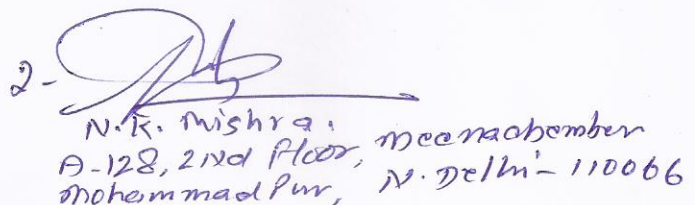 2-
N.K. Mishra.
A-128, 2nd Floor, Meenachember
Mohammad Pur, N. Delhi - 110066